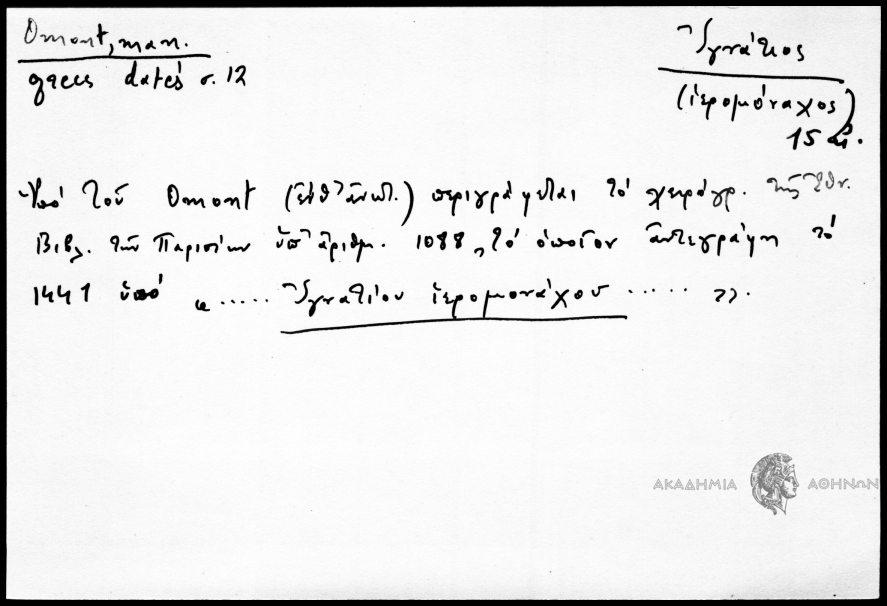 Omont, man.
grecs datés σ. 12
Ἰγνάτιος
(ἱερομόναχος)
15 αἰ.
Ὑπό τοῦ Omont (ἔνθ' ἀνωτ.) περιγράφεται τό χειρόγρ. τῆς Ἐθν.
Βιβλ. τῶν Παρισίων ὑπ' ἀριθμ. 1088, τό ὁποῖον ἀντεγράφη τό
1441 ὑπό "..... Ἰγνατίου ἱερομονάχου ..... ".
ΑΚΑΔΗΜΙΑ ΑΘΗΝΩΝ